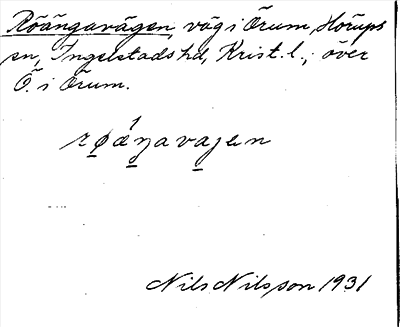 Röängavägen, väg i Örum, Hörups
sn, Ingelstads hd, Krist. l.; över
Ö. i Örum.
røǽŋavajen
Nils Nilsson 1931